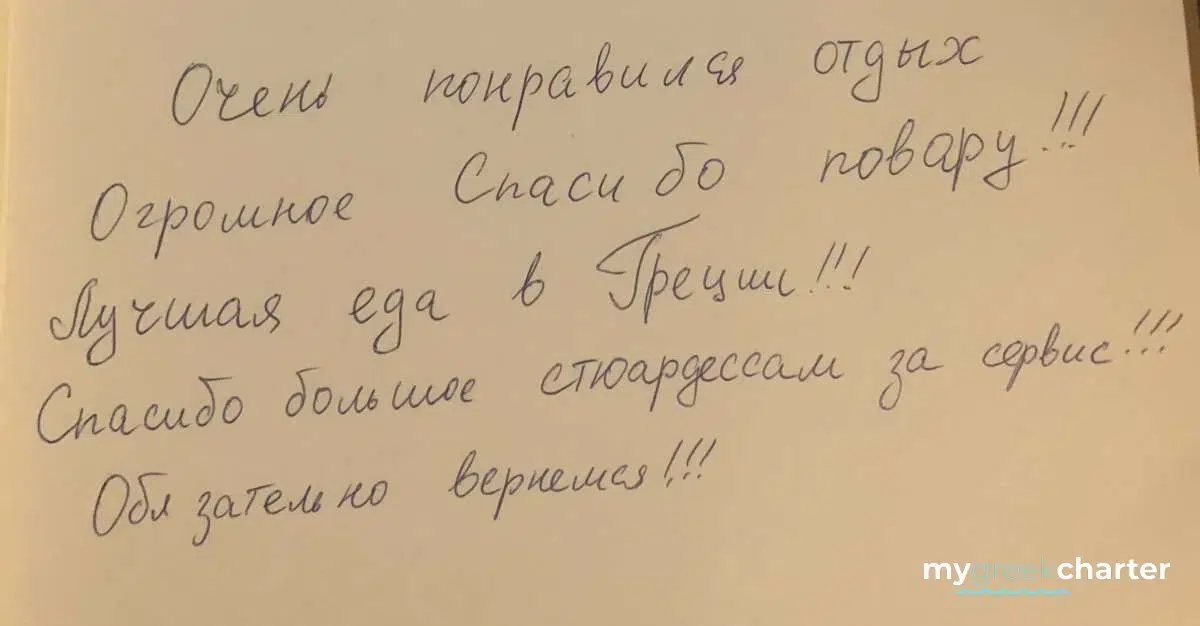 Очень понравился отдых
Огромное Спасибо повару!!!
Лучшая еда в Греции!!!
Спасибо большое стюардессам за сервис!!!
Обязательно вернемся!!!
mygreekcharter